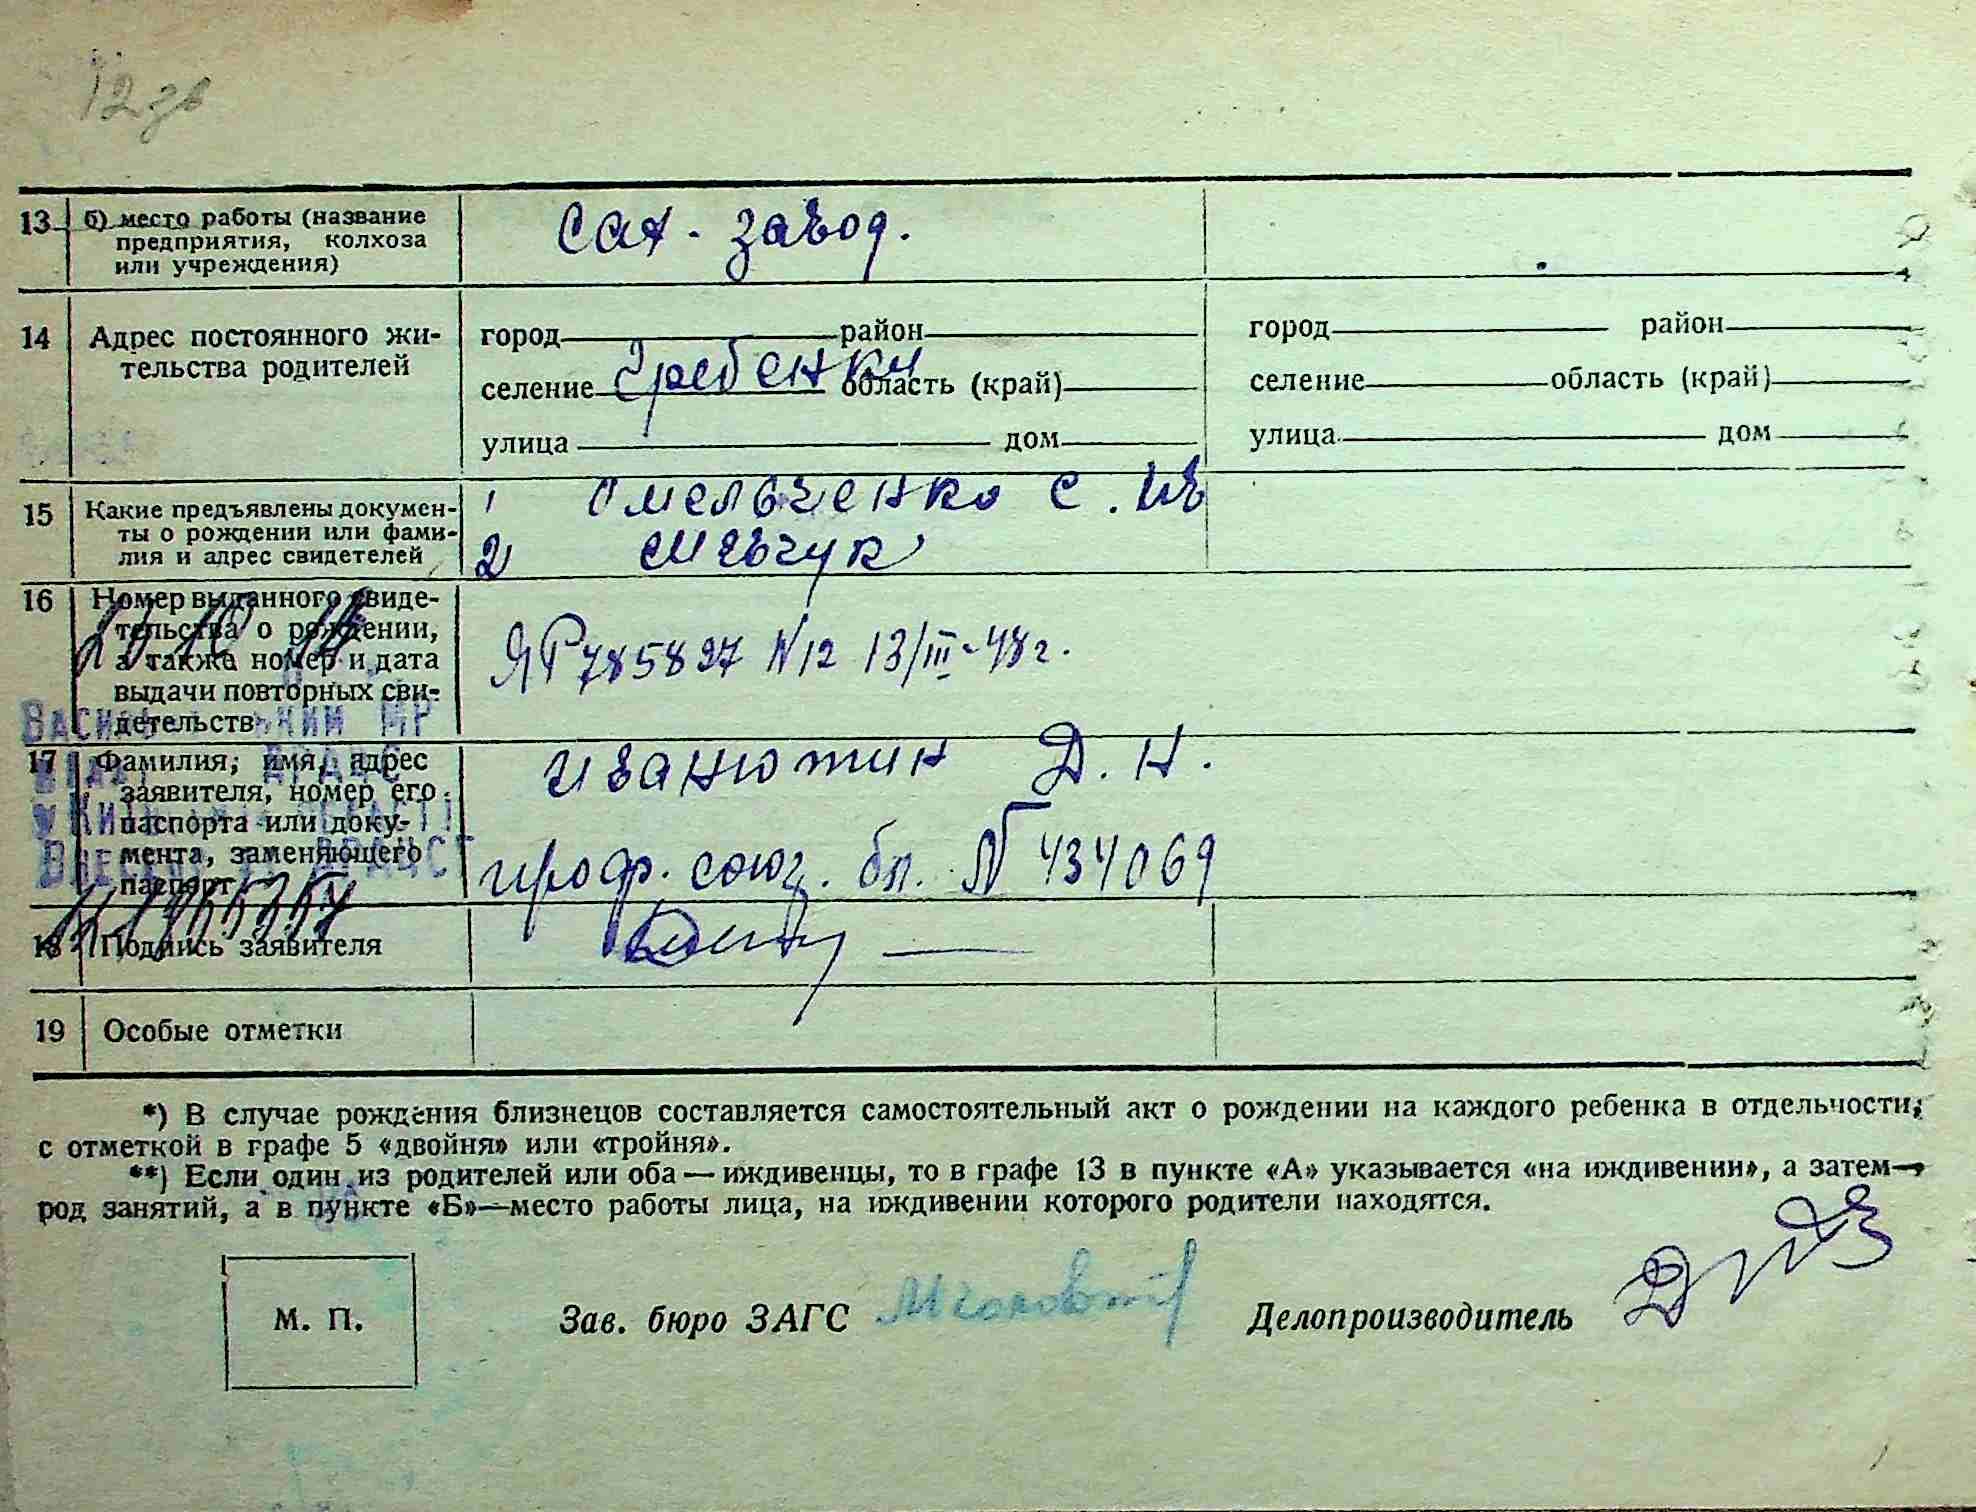 13 б) место работы (название
предприятия, колхоза
или учреждения)
Сах. завод.
14 Адрес постоянного жи-
тельства родителей
город район
селение Гребенки область (край)
улица дом
город район
селение область (край)
улица дом
15 Какие предъявлены докумен-
ты о рождении или фами-
лия и адрес свидетелей
1 Омельченко С.
2
16 Номер выданного свиде-
тельства о рождении,
а также номер и дата
выдачи повторных сви-
детельств
ЯР 785827 N 12 13/III-48 г.
17 Фамилия, имя, адрес
заявителя, номер его
паспорта или доку-
мента, заменяющего
паспорт
Иванютин Д. Н.
проф. союз. бл. N 434069
18 Подпись заявителя
19 Особые отметки
*) В случае рождения близнецов составляется самостоятельный акт о рождении на каждого ребенка в отдельности,
с отметкой в графе 5 «двойня» или «тройня».
**) Если один из родителей или оба — иждивенцы, то в графе 13 в пункте «А» указывается «на иждивении», а затем—
род занятий, а в пункте «Б»—место работы лица, на иждивении которого родители находятся.
М. П.
Зав. бюро ЗАГС
Делопроизводитель